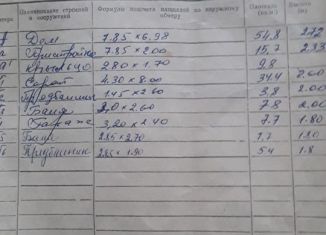 Наименование строений и сооружений
Формулы подсчета площадей по наружному обмеру
Площадь
Высота
Дом 7.85 × 6.98 54,8 272
Пристройка 7.85 × 2.00 15,7 2.35
Крыльцо 2.80 × 1.70 9,8
Сарай 4.30 × 8.00 34.4 2.60
1.45 × 2.60 3,8 2.00
Баня 3,0 × 2.60 7.8 2.00
3,20 × 2.40 7.7 1.80
2.85 × 2.70 7.7 1.80
Предбанник 2.85 × 1.90 5.4 1.8